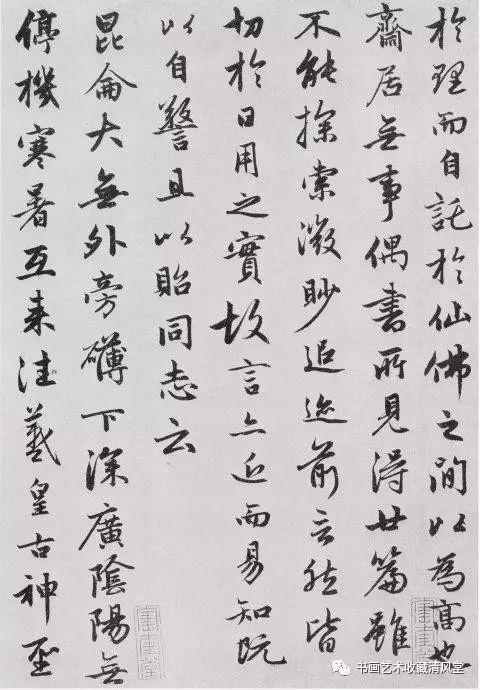 於理而自託於仙佛之間以為高也
齋居無事偶書所見得廿篇雖
不能探索微眇追迹前言然皆
切於日用之實故言亦近而易知既
以自警且以貽同志云
昆侖大無外旁礴下深廣陰陽無
停機寒暑互来往羲皇古神聖
书画艺术收藏清风堂